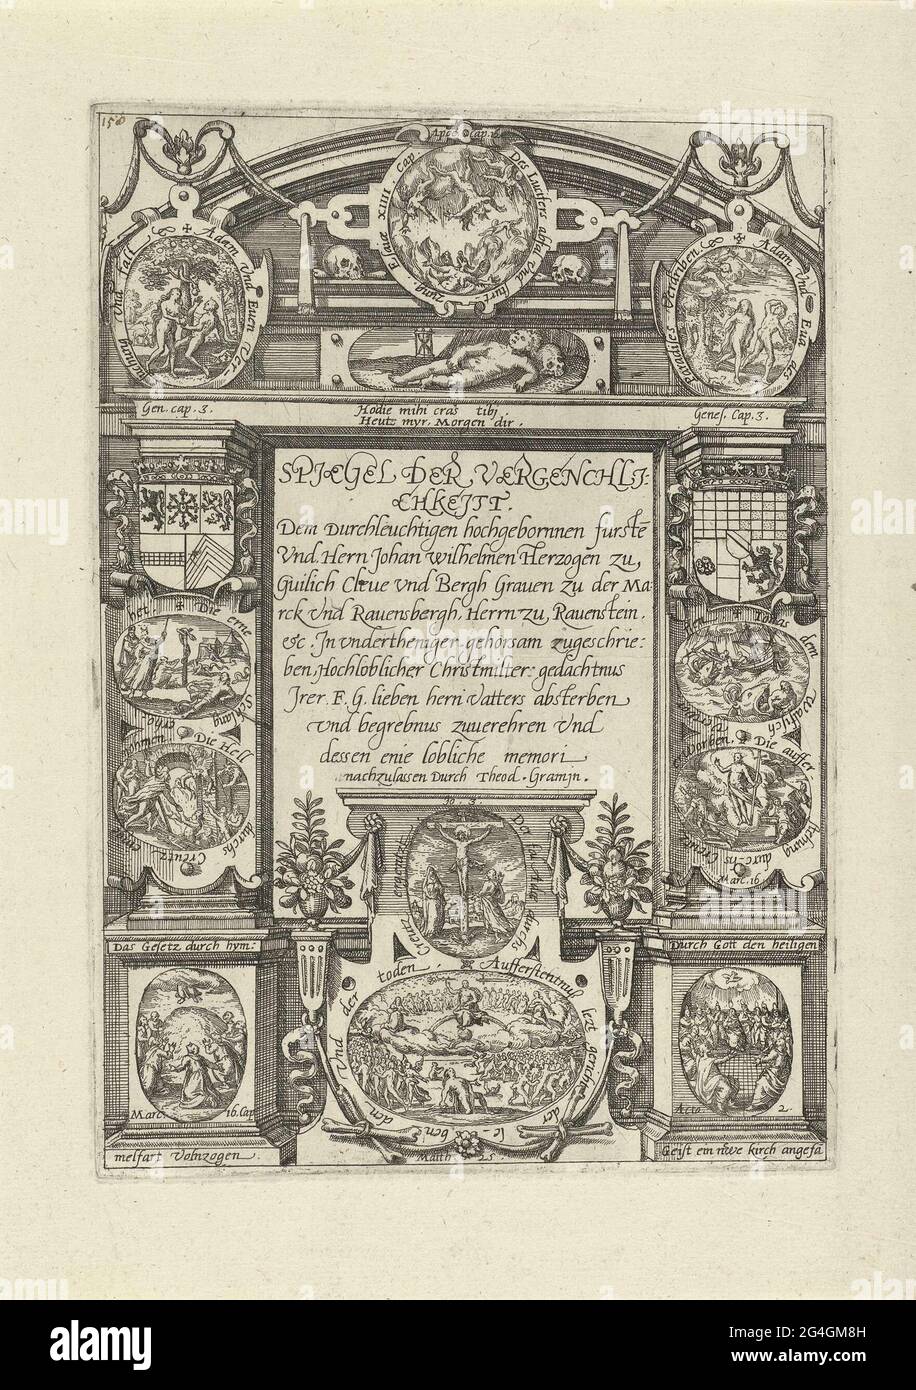 150
Apoc. cap. 12
Esaiæ XIIII Cap Des Lucifers abfal Und
Adam Und Euen
Und fall
Adam Und Eua des
Paradies
Gen. cap. 3.
Hodie mihi cras tibj
Heutz myr. Morgen dir.
Genes. Cap. 3.
SPIEGEL DER VERGENCHLI-
CHKEITT.
Dem Durchleuchtigen hochgebornnen furste
Und. Hern Johan Wilhelmen Herzogen zu
Guilich Cleue Und Bergh Grauen zu der Ma
rck Und Rauensbergh. Herrn zu, Rauenstein.
&c. In Vndertheniger gehorsam zugeschrie-
ben, Hochloblicher Christmilter gedachtnus
Jrer. F. G. lieben hern Vatters absterben
Und begrebnus zuuerehren Und
dessen enie lobliche memori
nachzulassen Durch Theod. Gramjn.
Die erne
Schlang
Jonas dem
Walfisch
Die Hell
durchs
Creutz
Die auffer-
Marc. 16
Io. 3.
Der
durchs
Creutz
Das Gesetz durch hym:
Durch Gott den heiligen
Aufferstentnuß
der toden.
Und
Marc. 16. Cap
Acto 2.
le ben
melfart Volnzogen.
Matth 25
Geist ein nwe kirch angefa
alamy
Image ID: 2G4GM8H
www.alamy.com